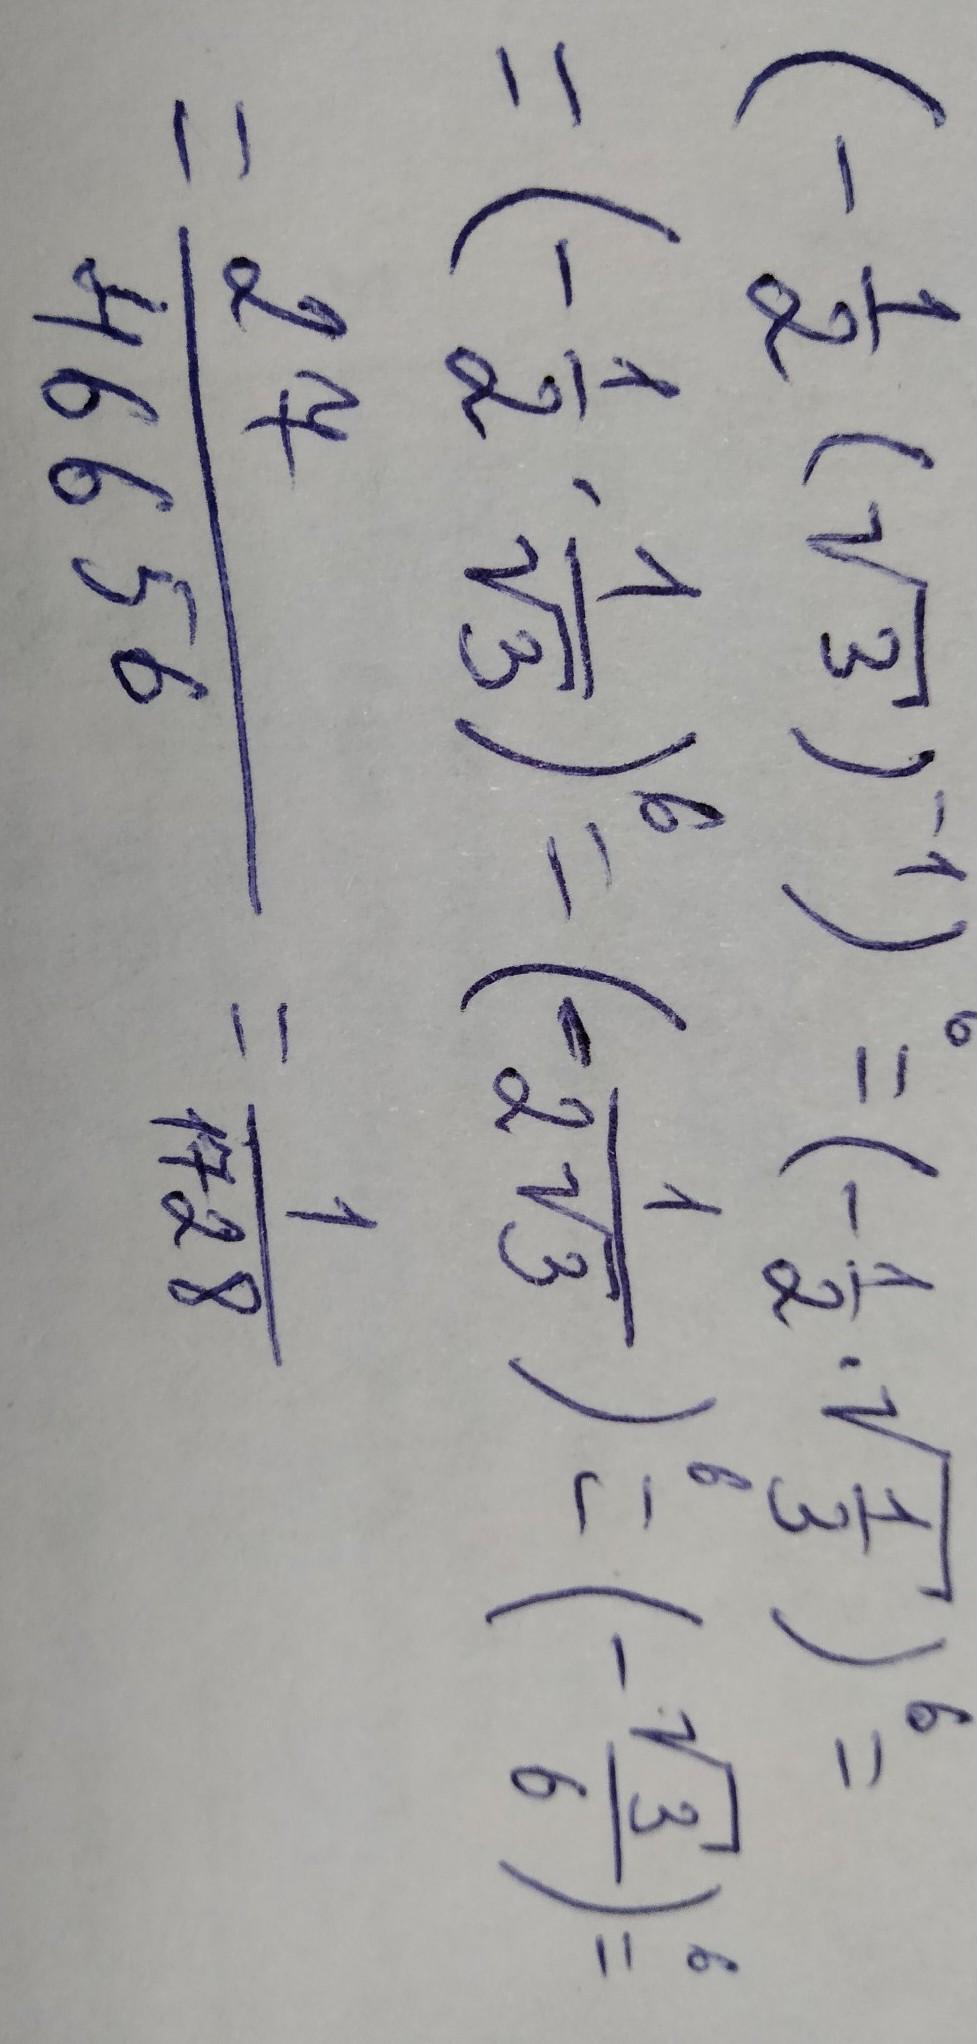 (-1/2 (√3)^-1)^6 = (-1/2 · √(1/3))^6 =
= (-1/2 · 1/√3)^6 = (-1/(2√3))^6 = (-√3/6)^6 =
= 27/46656 = 1/1728